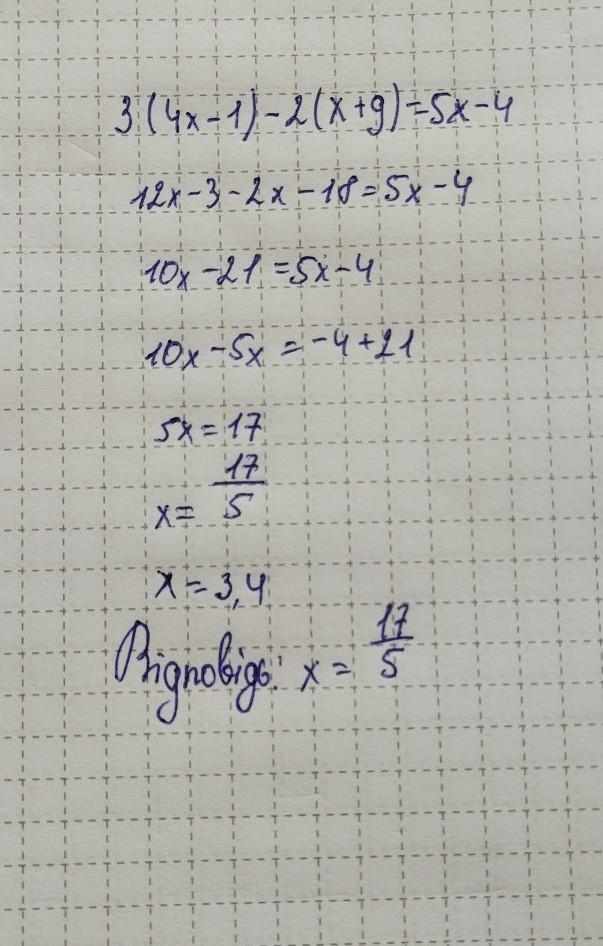 3(4x-1)-2(x+9)=5x-4
12x-3-2x-18=5x-4
10x-21=5x-4
10x-5x=-4+21
5x=17
x=17/5
x=3,4
Відповідь: x=17/5